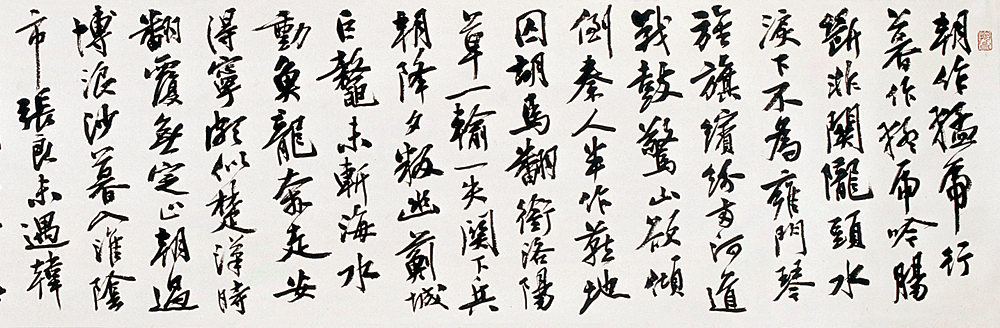 朝作猛虎行
暮作猛虎吟腸
斷非關隴頭水
淚下不為雍門琴
旌旗繽紛兩河道
戰鼓驚山欲傾
倒秦人半作燕地
囚胡馬翻銜洛陽
草一輸一失關下兵
朝降夕叛幽薊城
巨鼇未斬海水
動魚龍奔走安
得寧頗似楚漢時
翻覆無定止朝過
博浪沙暮入淮陰
市張良未遇韓